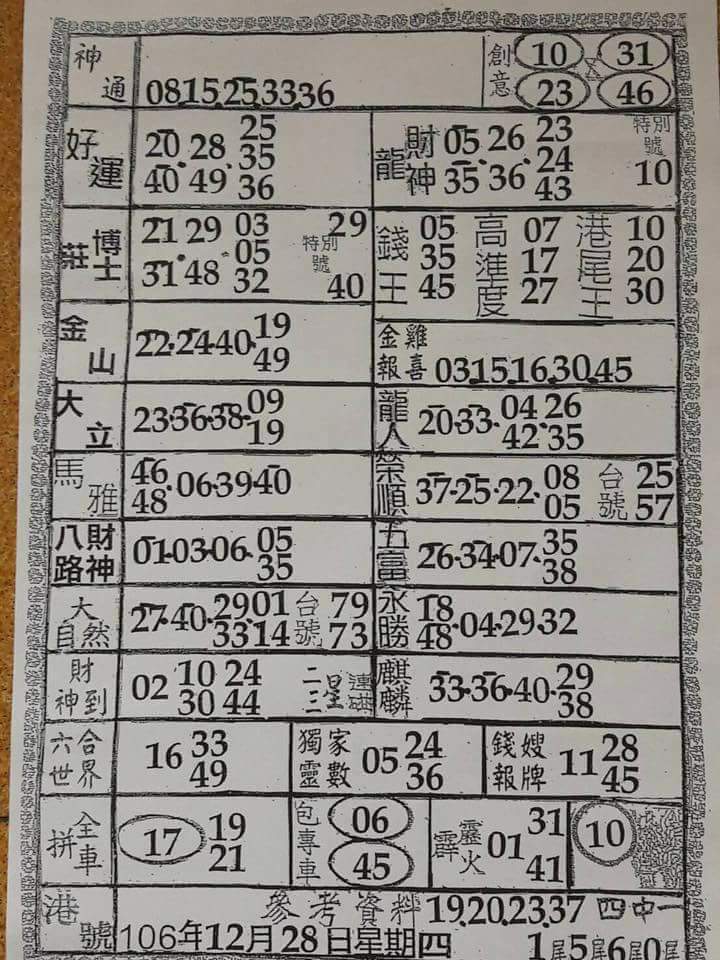 神通 08.15.25.33.36
創意 10 31 23 46
好運 20.28.25
40.49.35
36
龍 財神 05.26.23
35.36.24
43
特別號 10
莊 博士 21 29 03
31.48 05
32
特別號 29
40
錢王 05 35 45
高準度 07 17 27
港尾王 10 20 30
金山 22.24.40.19
49
金雞報喜 03.15.16.30.45
大立 23.36.38.09
19
龍人 20.33.04 26
42.35
馬雅 46.06.39.40
48
榮順 37.25.22.08
05
台號 25
57
八路財神 01.03.06.05
35
五富 26.34.07.35
38
大自然 27.40.29.01
33.14
台號 79
73
永勝 18.04.29.32
48
財神到 02 10 24
30 44
二三星連碰
麒麟 33.36.40.29
38
六合世界 16 33
49
獨家靈數 05 24
36
錢嫂報牌 11 28
45
拼全車 17 19
21
包專車 06
45
霹靂火 01 31
41
10
港號 參考資料 19.20.23.37 四中一
106年12月28日星期四 1尾5尾6尾0尾